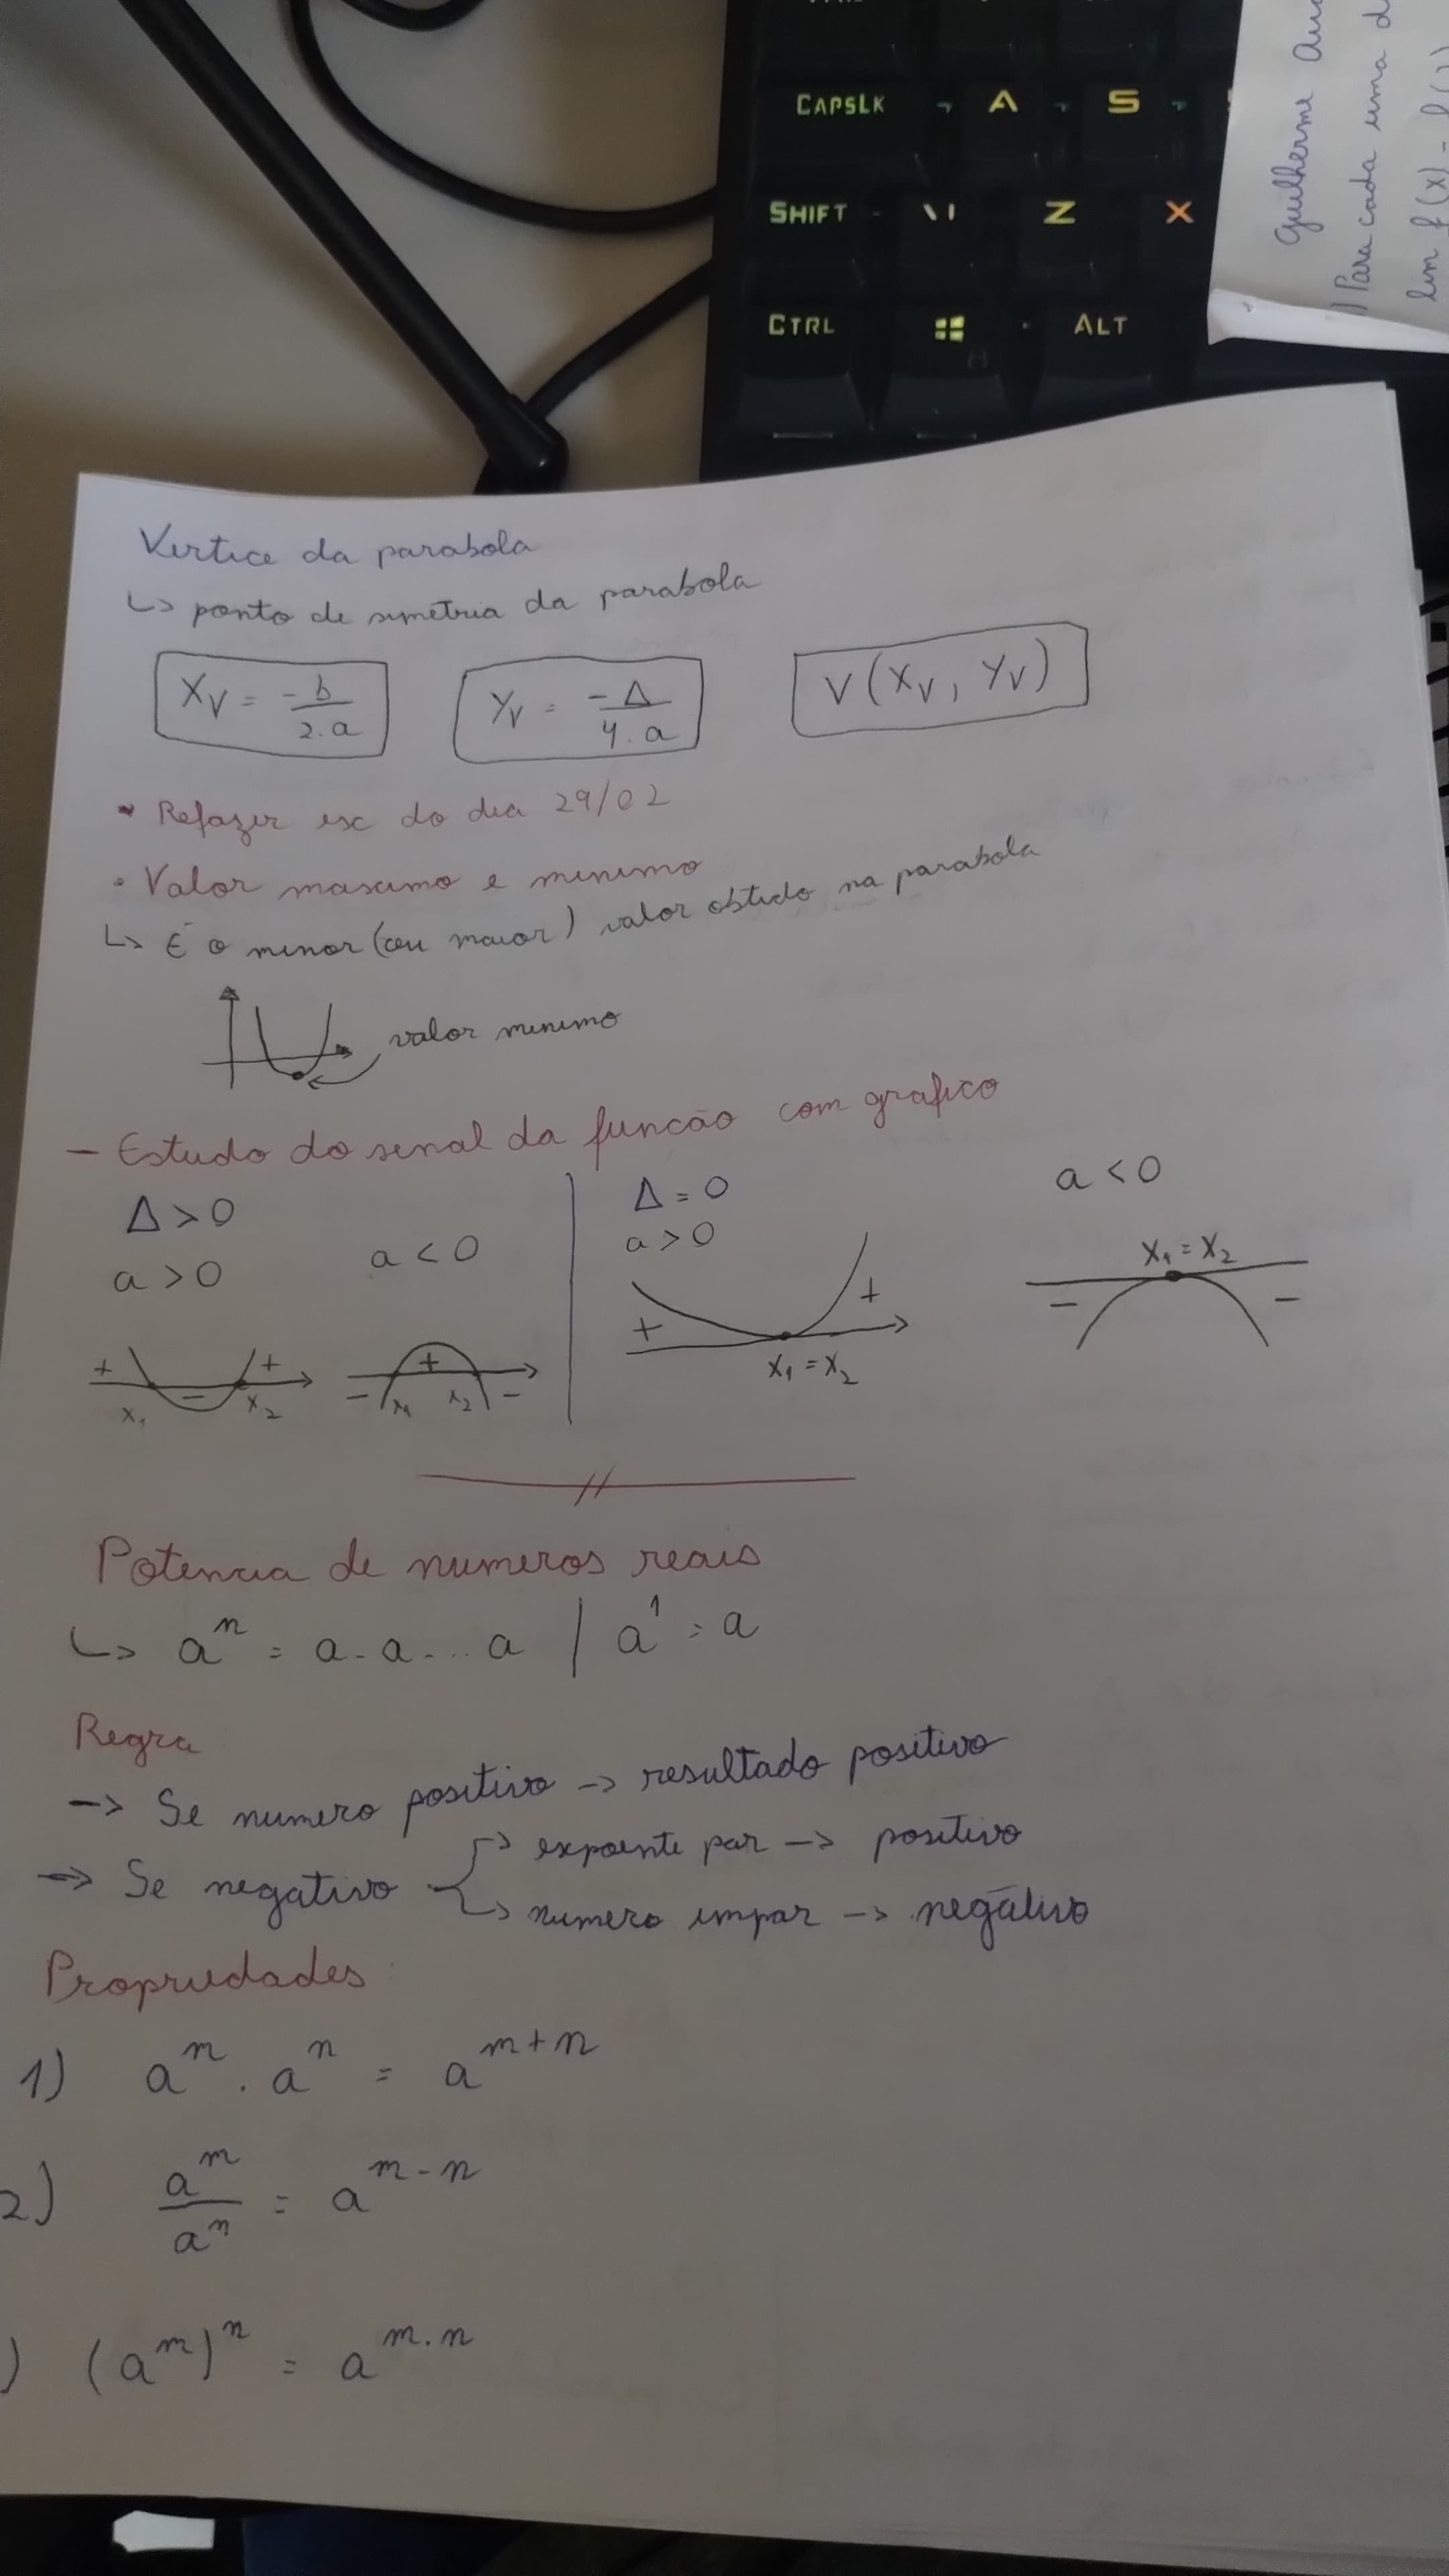 CAPSLK A S
SHIFT \ | Z X
CTRL ALT
Guilherme
Para cada uma d
lim f(x) -
Vertice da parabola
↳ ponto de simetria da parabola
Xv = -b/2.a   Yv = -Δ/4.a   V(Xv, Yv)
* Refazer exc do dia 29/02
• Valor maximo e minimo
↳ É o menor (ou maior) valor obtido na parabola
valor minimo
- Estudo do sinal da funcão com grafico
Δ > 0   Δ = 0   a < 0
a > 0   a < 0   a > 0
X₁ = X₂
+ + - -
+ - + - + -
X₁ X₂ X₁ X₂ X₁ = X₂
Potencia de numeros reais
↳ aⁿ = a . a . ... a | a¹ = a
Regra
-> Se numero positivo -> resultado positivo
-> Se negativo -> expoente par -> positivo
-> numero impar -> negativo
Propriedades
1) aᵐ . aⁿ = aᵐ⁺ⁿ
2) aᵐ/aⁿ = aᵐ⁻ⁿ
) (aᵐ)ⁿ = aᵐ·ⁿ